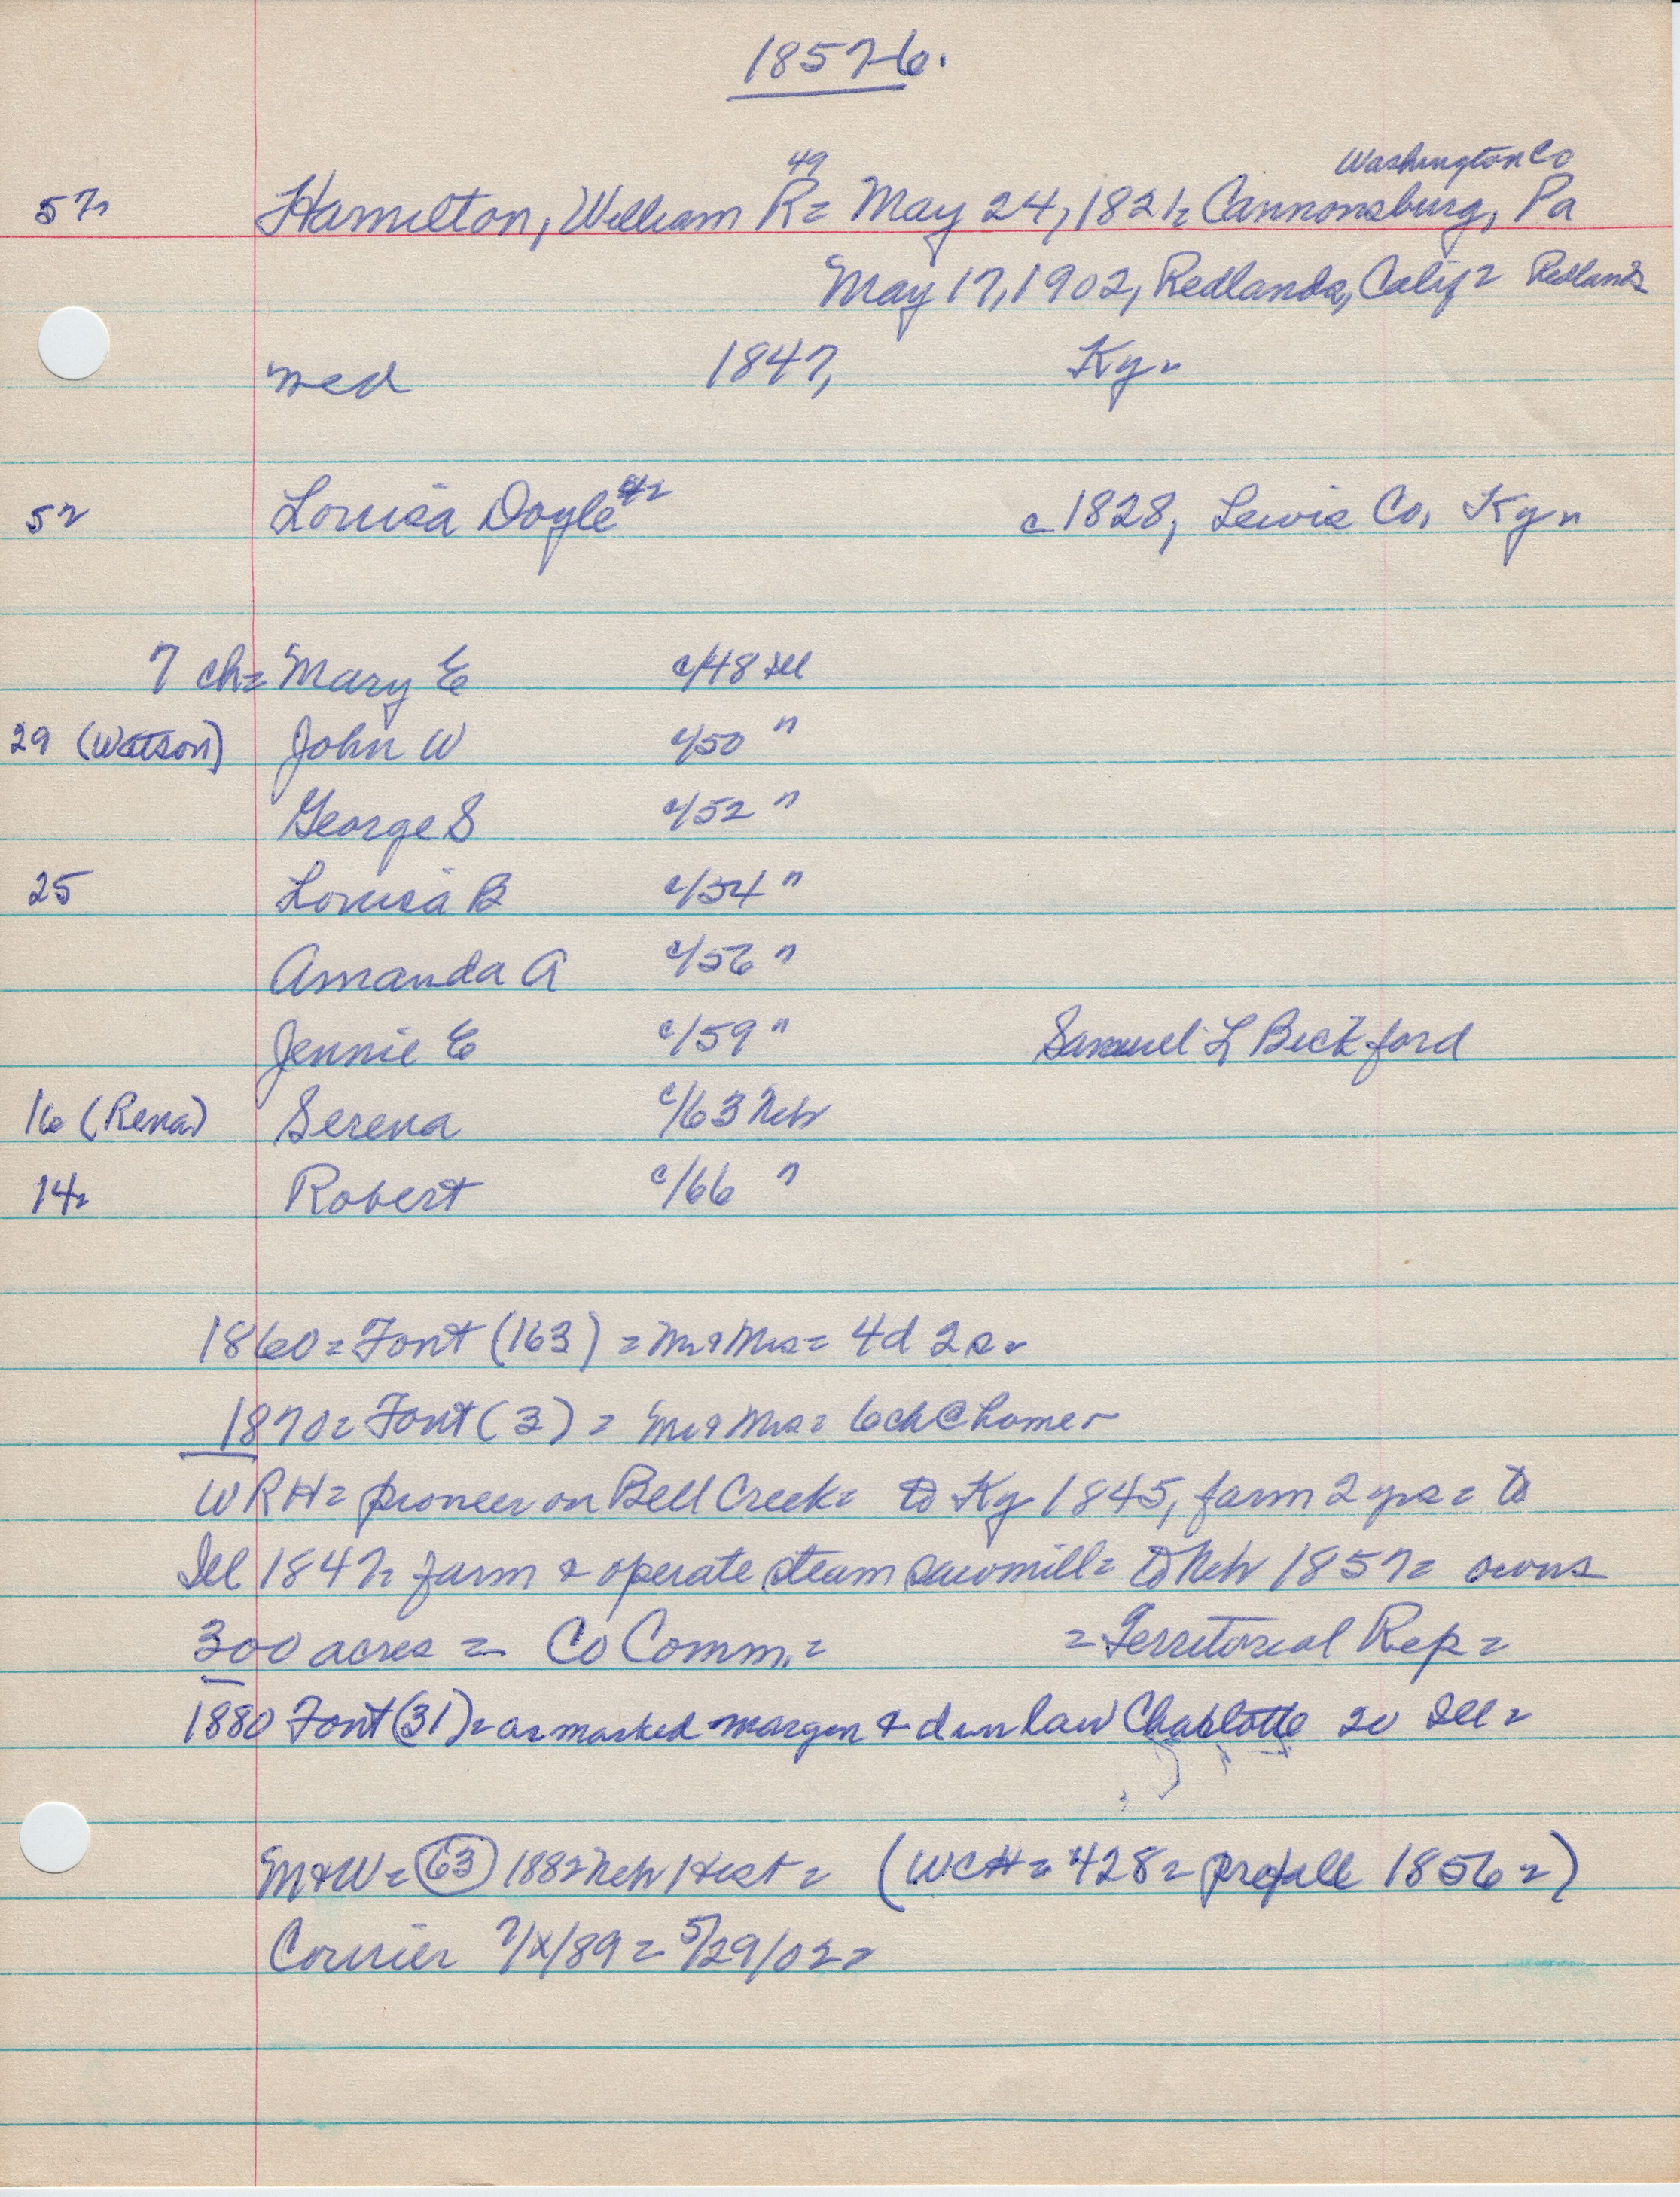 1857-6.
49 Washington Co
57= Hamilton, William R= May 24, 1821= Cannonsburg, Pa
May 17, 1902, Redlands, Calif= Redlands
med 1847, Ky=
52 Louisa Doyle 42 c 1828, Lewis Co, Ky=
7 ch= Mary E c/48 Ill
29 (Watson) John W c/50 "
George S c/52 "
25 Louisa B c/54 "
Amanda A c/56 "
Jennie E c/59 " Samuel L Beckford
16 (Rena) Serena c/63 Neb
14= Robert c/66 "
1860= Font (163) = Mr & Mrs= 4d 2s=
1870= Font (3) = Mr & Mrs= 6ch @ home=
WRH= pioneer on Bell Creek= to Ky 1845, farm 2 yrs= to
Ill 1847= farm & operate steam sawmill= to Neb 1857= owns
300 acres = Co Comm.= = Territorial Rep=
1880 Font (31)= as marked margin & d in law Charlotte 20 Ill=
M&W= 63 1882 Neb Hist = (WCH= 428= pref all 1856=)
Courier 7/x/89= 5/29/02=